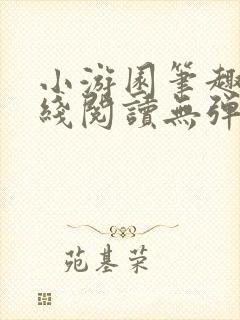 小游園筆趣
綫閱讀無彈
苑基荣